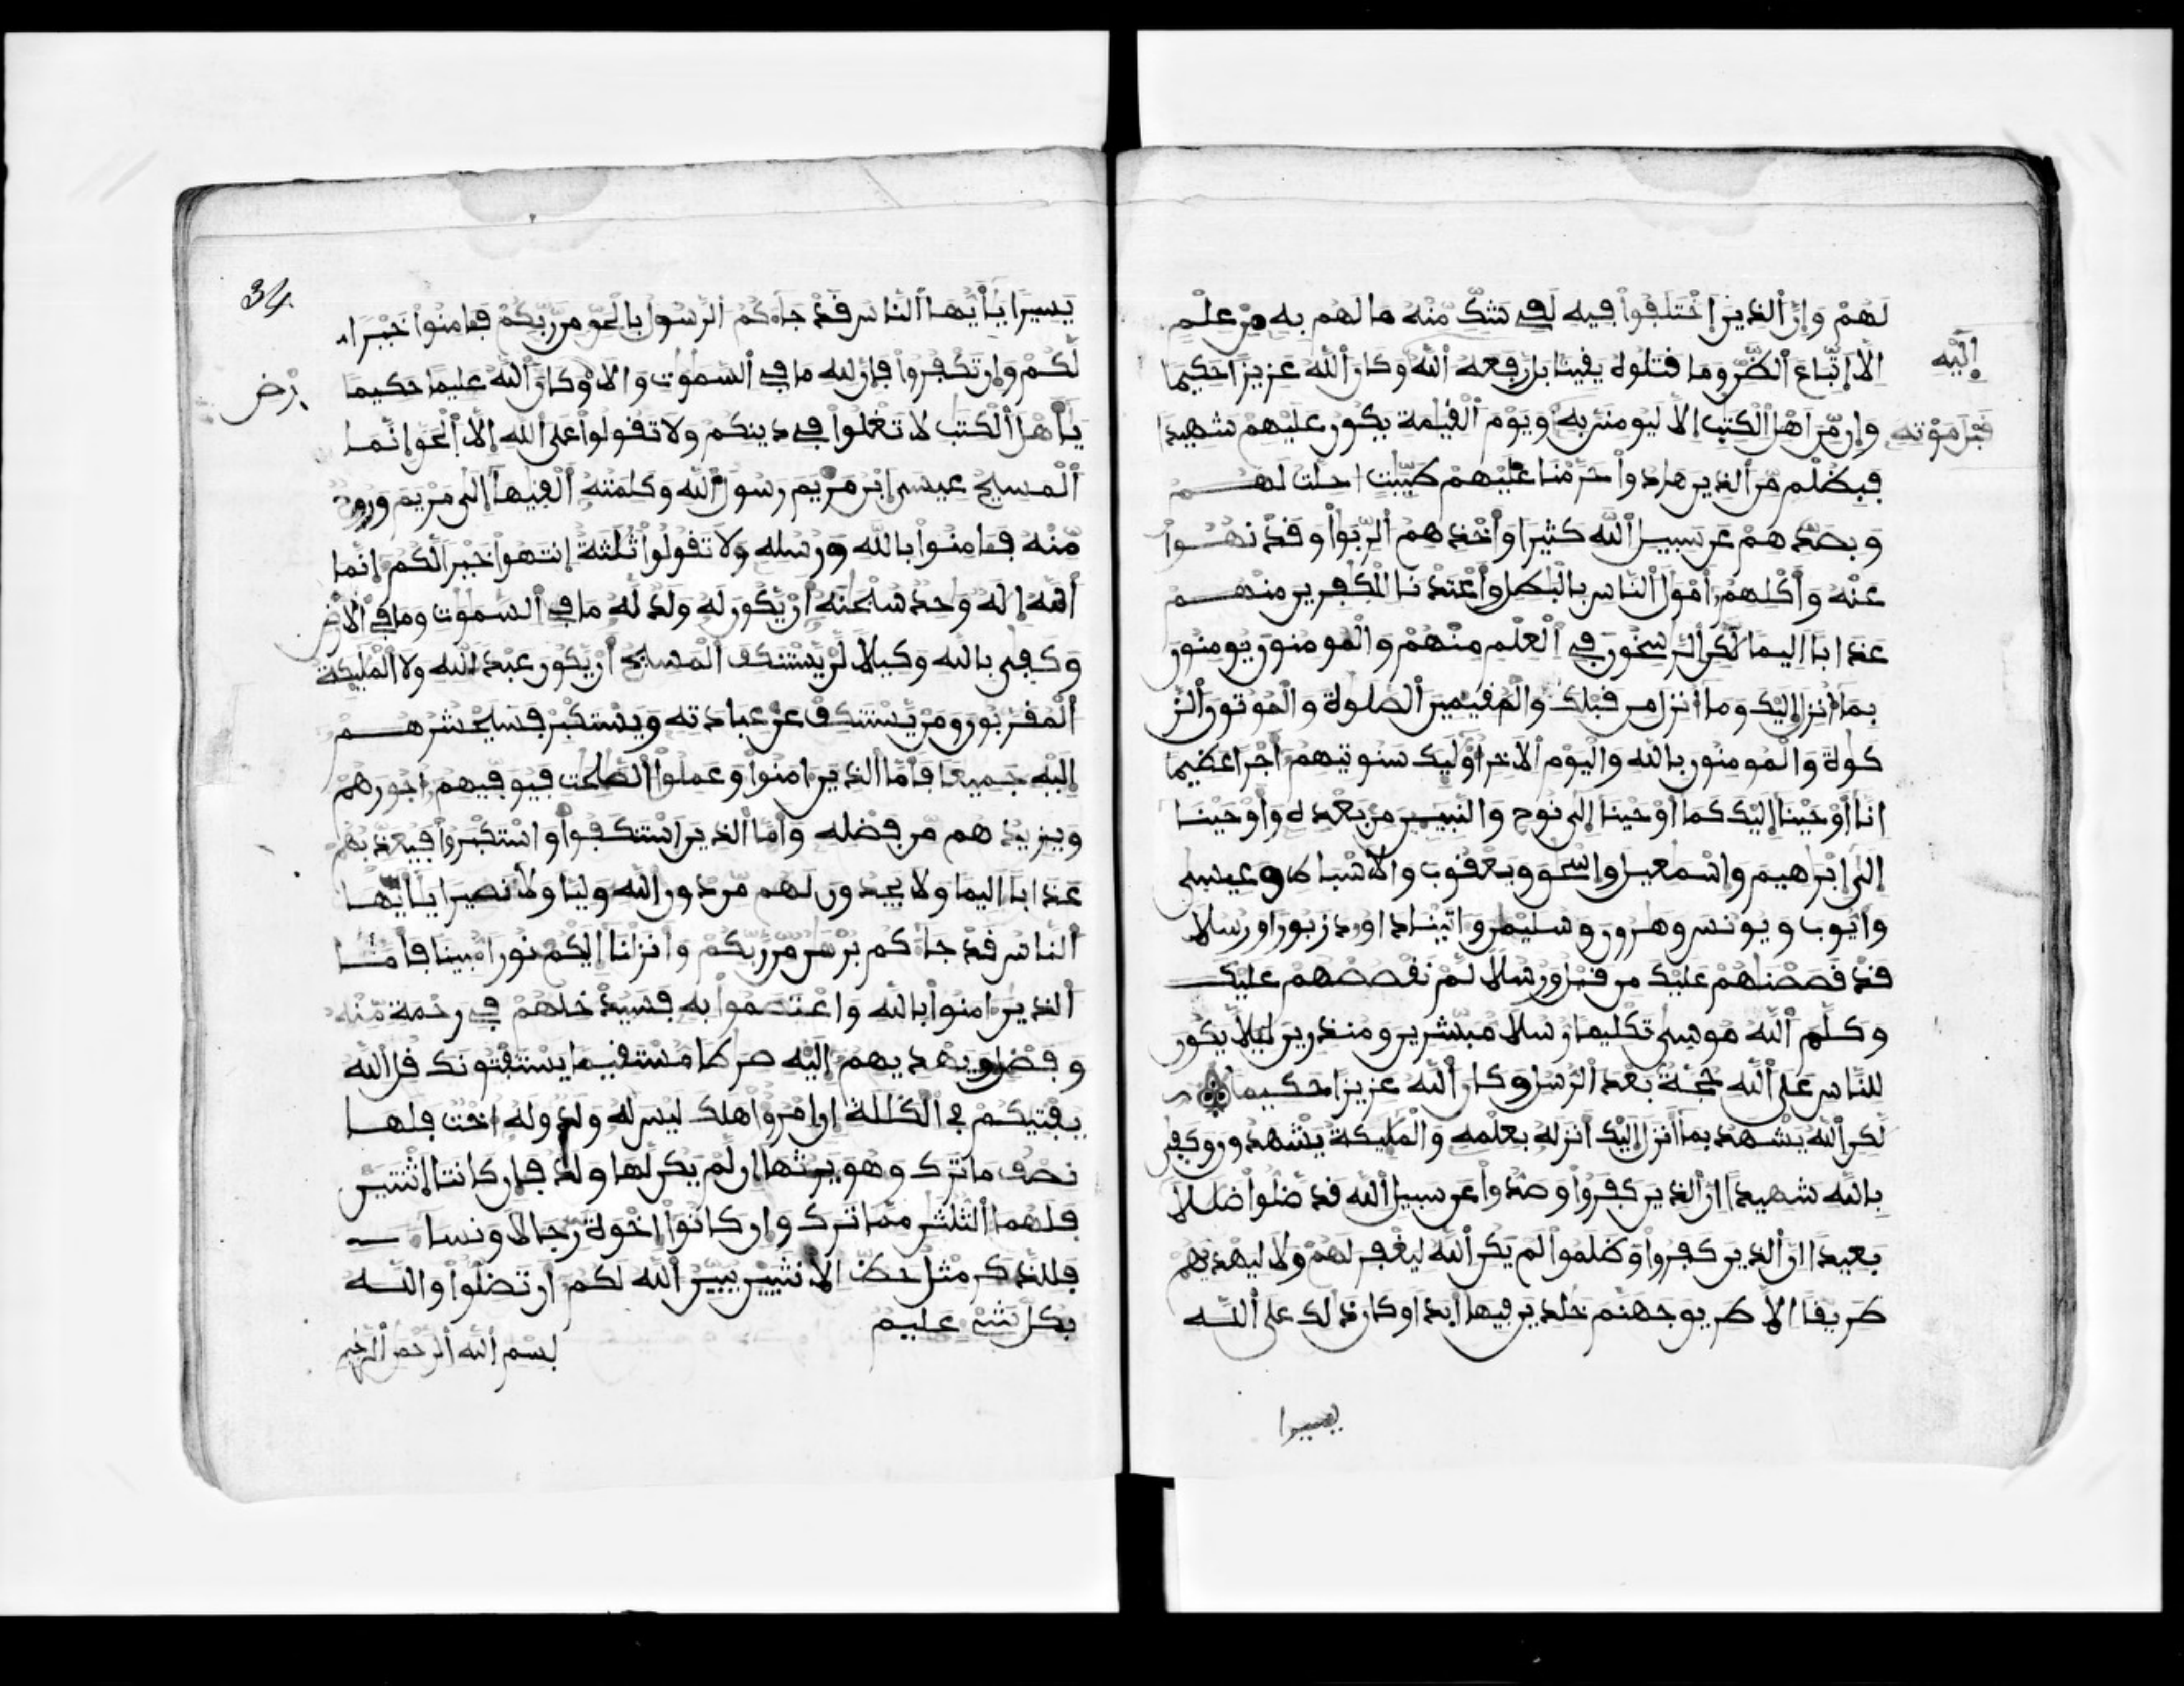 لَهُمْ وَإِنَّ ٱلذِينَ ٱخْتَلَفُوا۟ فِيهِ لَفِے شَكٍّ مِّنْهُ مَا لَهُم بِهِ مِنْ عِلْمٍ
إِلَّا ٱتِّبَاعَ ٱلظَّنِّ وَمَا قَتَلُوهُ يَقِينًا بَل رَّفَعَهُ ٱللَّهُ وَكَانَ ٱللَّهُ عَزِيزًا حَكِيمًا
إِلَيْهِ
وَإِن مِّنْ أَهْلِ ٱلْكِتَٰبِ إِلَّا لَيُومِنَنَّ بِهِ وَيَوْمَ ٱلْقِيَٰمَةِ يَكُونُ عَلَيْهِمْ شَهِيدًا
قَبْلَ مَوْتِهِ
فَبِظُلْمٍ مِّنَ ٱلذِينَ هَادُوا۟ حَرَّمْنَا عَلَيْهِمْ طَيِّبَٰتٍ احِلَّتْ لَهُمْ
وَبِصَدِّهِمْ عَن سَبِيلِ ٱللَّهِ كَثِيرًا وَأَخْذِهِمُ ٱلرِّبَوٰا۟ وَقَدْ نُهُوا۟
عَنْهُ وَأَكْلِهِمُ أَمْوَٰلَ ٱلنَّاسِ بِالْبَٰطِلِ وَأَعْتَدْنَا لِلْكَٰفِرِينَ مِنْهُمْ
عَذَابًا الِيمًا لَّٰكِنِ ٱلرَّٰسِخُونَ فِے ٱلْعِلْمِ مِنْهُمْ وَالْمُومِنُونَ يُومِنُونَ
بِمَا أُنزِلَ إِلَيْكَ وَمَا أُنزِلَ مِن قَبْلِكَ وَالْمُقِيمِينَ ٱلصَّلَوٰةَ وَالْمُوتُونَ ٱلزَّ
كَوٰةَ وَالْمُومِنُونَ بِاللَّهِ وَالْيَوْمِ ٱلَاخِرِ أُوْلَٰٓئِكَ سَنُوتِيهِمُ أَجْرًا عَظِيمًا
انَّا أَوْحَيْنَا إِلَيْكَ كَمَا أَوْحَيْنَا إِلَىٰ نُوحٍ وَالنَّبِيِّينَ مِنْ بَعْدِهِ وَأَوْحَيْنَا
إِلَىٰ إِبْرَٰهِيمَ وَإِسْمَٰعِيلَ وَإِسْحَٰقَ وَيَعْقُوبَ وَالَاسْبَاطِ وَعِيسَىٰ
وَأَيُّوبَ وَيُونُسَ وَهَٰرُونَ وَسُلَيْمَٰنَ وَءَاتَيْنَا دَاوُۥدَ زَبُورًا وَرُسُلًا
قَدْ قَصَصْنَاهُمْ عَلَيْكَ مِن قَبْلُ وَرُسُلًا لَّمْ نَقْصُصْهُمْ عَلَيْكَ
وَكَلَّمَ ٱللَّهُ مُوسَىٰ تَكْلِيمًا رُّسُلًا مُّبَشِّرِينَ وَمُنذِرِينَ لِيَلَّا يَكُونَ
لِلنَّاسِ عَلَى ٱللَّهِ حُجَّةٌ بَعْدَ ٱلرُّسُلِ وَكَانَ ٱللَّهُ عَزِيزًا حَكِيمًا
لَّٰكِنِ ٱللَّهُ يَشْهَدُ بِمَا أَنزَلَ إِلَيْكَ أَنزَلَهُ بِعِلْمِهِ وَالْمَلَٰٓئِكَةُ يَشْهَدُونَ وَكَفَىٰ
بِاللَّهِ شَهِيدًا إِنَّ ٱلذِينَ كَفَرُوا۟ وَصَدُّوا۟ عَن سَبِيلِ ٱللَّهِ قَدْ ضَلُّوا۟ ضَلَٰلًا
بَعِيدًا إِنَّ ٱلذِينَ كَفَرُوا۟ وَظَلَمُوا۟ لَمْ يَكُنِ ٱللَّهُ لِيَغْفِرَ لَهُمْ وَلَا لِيَهْدِيَهُمْ
طَرِيقًا إِلَّا طَرِيقَ جَهَنَّمَ خَٰلِدِينَ فِيهَا أَبَدًا وَكَانَ ذَٰلِكَ عَلَى ٱللَّهِ
يسيرا
34
يَسِيرًا يَٰأَيُّهَا ٱلنَّاسُ قَدْ جَآءَكُمُ ٱلرَّسُولُ بِالْحَقِّ مِن رَّبِّكُمْ فَـَٔامِنُوا۟ خَيْرًا
لَّكُمْ وَإِن تَكْفُرُوا۟ فَإِنَّ لِلهِ مَا فِے ٱلسَّمَٰوَٰتِ وَالَا وَكَانَ ٱللَّهُ عَلِيمًا حَكِيمًا
رْضِ
يَٰأَهْلَ ٱلْكِتَٰبِ لَا تَغْلُوا۟ فِے دِينِكُمْ وَلَا تَقُولُوا۟ عَلَى ٱللَّهِ إِلَّا ٱلْحَقَّ إِنَّمَا
ٱلْمَسِيحُ عِيسَى ٱبْنُ مَرْيَمَ رَسُولُ ٱللَّهِ وَكَلِمَتُهُ أَلْقَيٰهَا إِلَىٰ مَرْيَمَ وَرُوحٌ
مِّنْهُ فَـَٔامِنُوا۟ بِاللَّهِ وَرُسُلِهِ وَلَا تَقُولُوا۟ ثَلَٰثَةٌ إِنتَهُوا۟ خَيْرًا لَّكُمْ إِنَّمَا
ٱللَّهُ إِلَٰهٌ وَٰحِدٌ سُبْحَٰنَهُ أَنْ يَّكُونَ لَهُ وَلَدٌ لَّهُ مَا فِے ٱلسَّمَٰوَٰتِ وَمَا فِے ٱلَارْضِ
وَكَفَىٰ بِاللَّهِ وَكِيلًا لَّنْ يَّسْتَنكِفَ ٱلْمَسِيحُ أَنْ يَّكُونَ عَبْدًا لِّلهِ وَلَا ٱلْمَلَٰٓئِكَةُ
ٱلْمُقَرَّبُونَ وَمَنْ يَّسْتَنكِفْ عَنْ عِبَادَتِهِ وَيَسْتَكْبِرْ فَسَيَحْشُرُهُمْ
إِلَيْهِ جَمِيعًا فَأَمَّا ٱلذِينَ ءَامَنُوا۟ وَعَمِلُوا۟ ٱلصَّٰلِحَٰتِ فَيُوَفِّيهِمُ أُجُورَهُمْ
وَيَزِيدُهُم مِّن فَضْلِهِ وَأَمَّا ٱلذِينَ ٱسْتَنكَفُوا۟ وَاسْتَكْبَرُوا۟ فَيُعَذِّبُهُمْ
عَذَابًا الِيمًا وَلَا يَجِدُونَ لَهُم مِّن دُونِ ٱللَّهِ وَلِيًّا وَلَا نَصِيرًا يَٰأَيُّهَا
ٱلنَّاسُ قَدْ جَآءَكُم بُرْهَٰنٌ مِّن رَّبِّكُمْ وَأَنزَلْنَا إِلَيْكُمْ نُورًا مُّبِينًا فَأَمَّا
ٱلذِينَ ءَامَنُوا۟ بِاللَّهِ وَاعْتَصَمُوا۟ بِهِ فَسَيُدْخِلُهُمْ فِے رَحْمَةٍ مِّنْهُ
وَفَضْلٍ وَيَهْدِيهِمُ إِلَيْهِ صِرَٰطًا مُّسْتَقِيمًا يَسْتَفْتُونَكَ قُلِ ٱللَّهُ
يُفْتِيكُمْ فِے ٱلْكَلَٰلَةِ إِنِ ٱمْرُؤٌا۟ هَلَكَ لَيْسَ لَهُ وَلَدٌ وَلَهُ أُخْتٌ فَلَهَا
نِصْفُ مَا تَرَكَ وَهُوَ يَرِثُهَا إِن لَّمْ يَكُن لَّهَا وَلَدٌ فَإِن كَانَتَا ٱثْنَتَيْنِ
فَلَهُمَا ٱلثُّلُثَٰنِ مِمَّا تَرَكَ وَإِن كَانُوا۟ إِخْوَةً رِّجَالًا وَنِسَآءً
فَلِلذَّكَرِ مِثْلُ حَظِّ ٱلُانثَيَيْنِ يُبَيِّنُ ٱللَّهُ لَكُمُ أَن تَضِلُّوا۟ وَاللَّهُ
بِكُلِّ شَےْءٍ عَلِيمٌ
بسم ٱلله ٱلرحمن ٱلرحيم